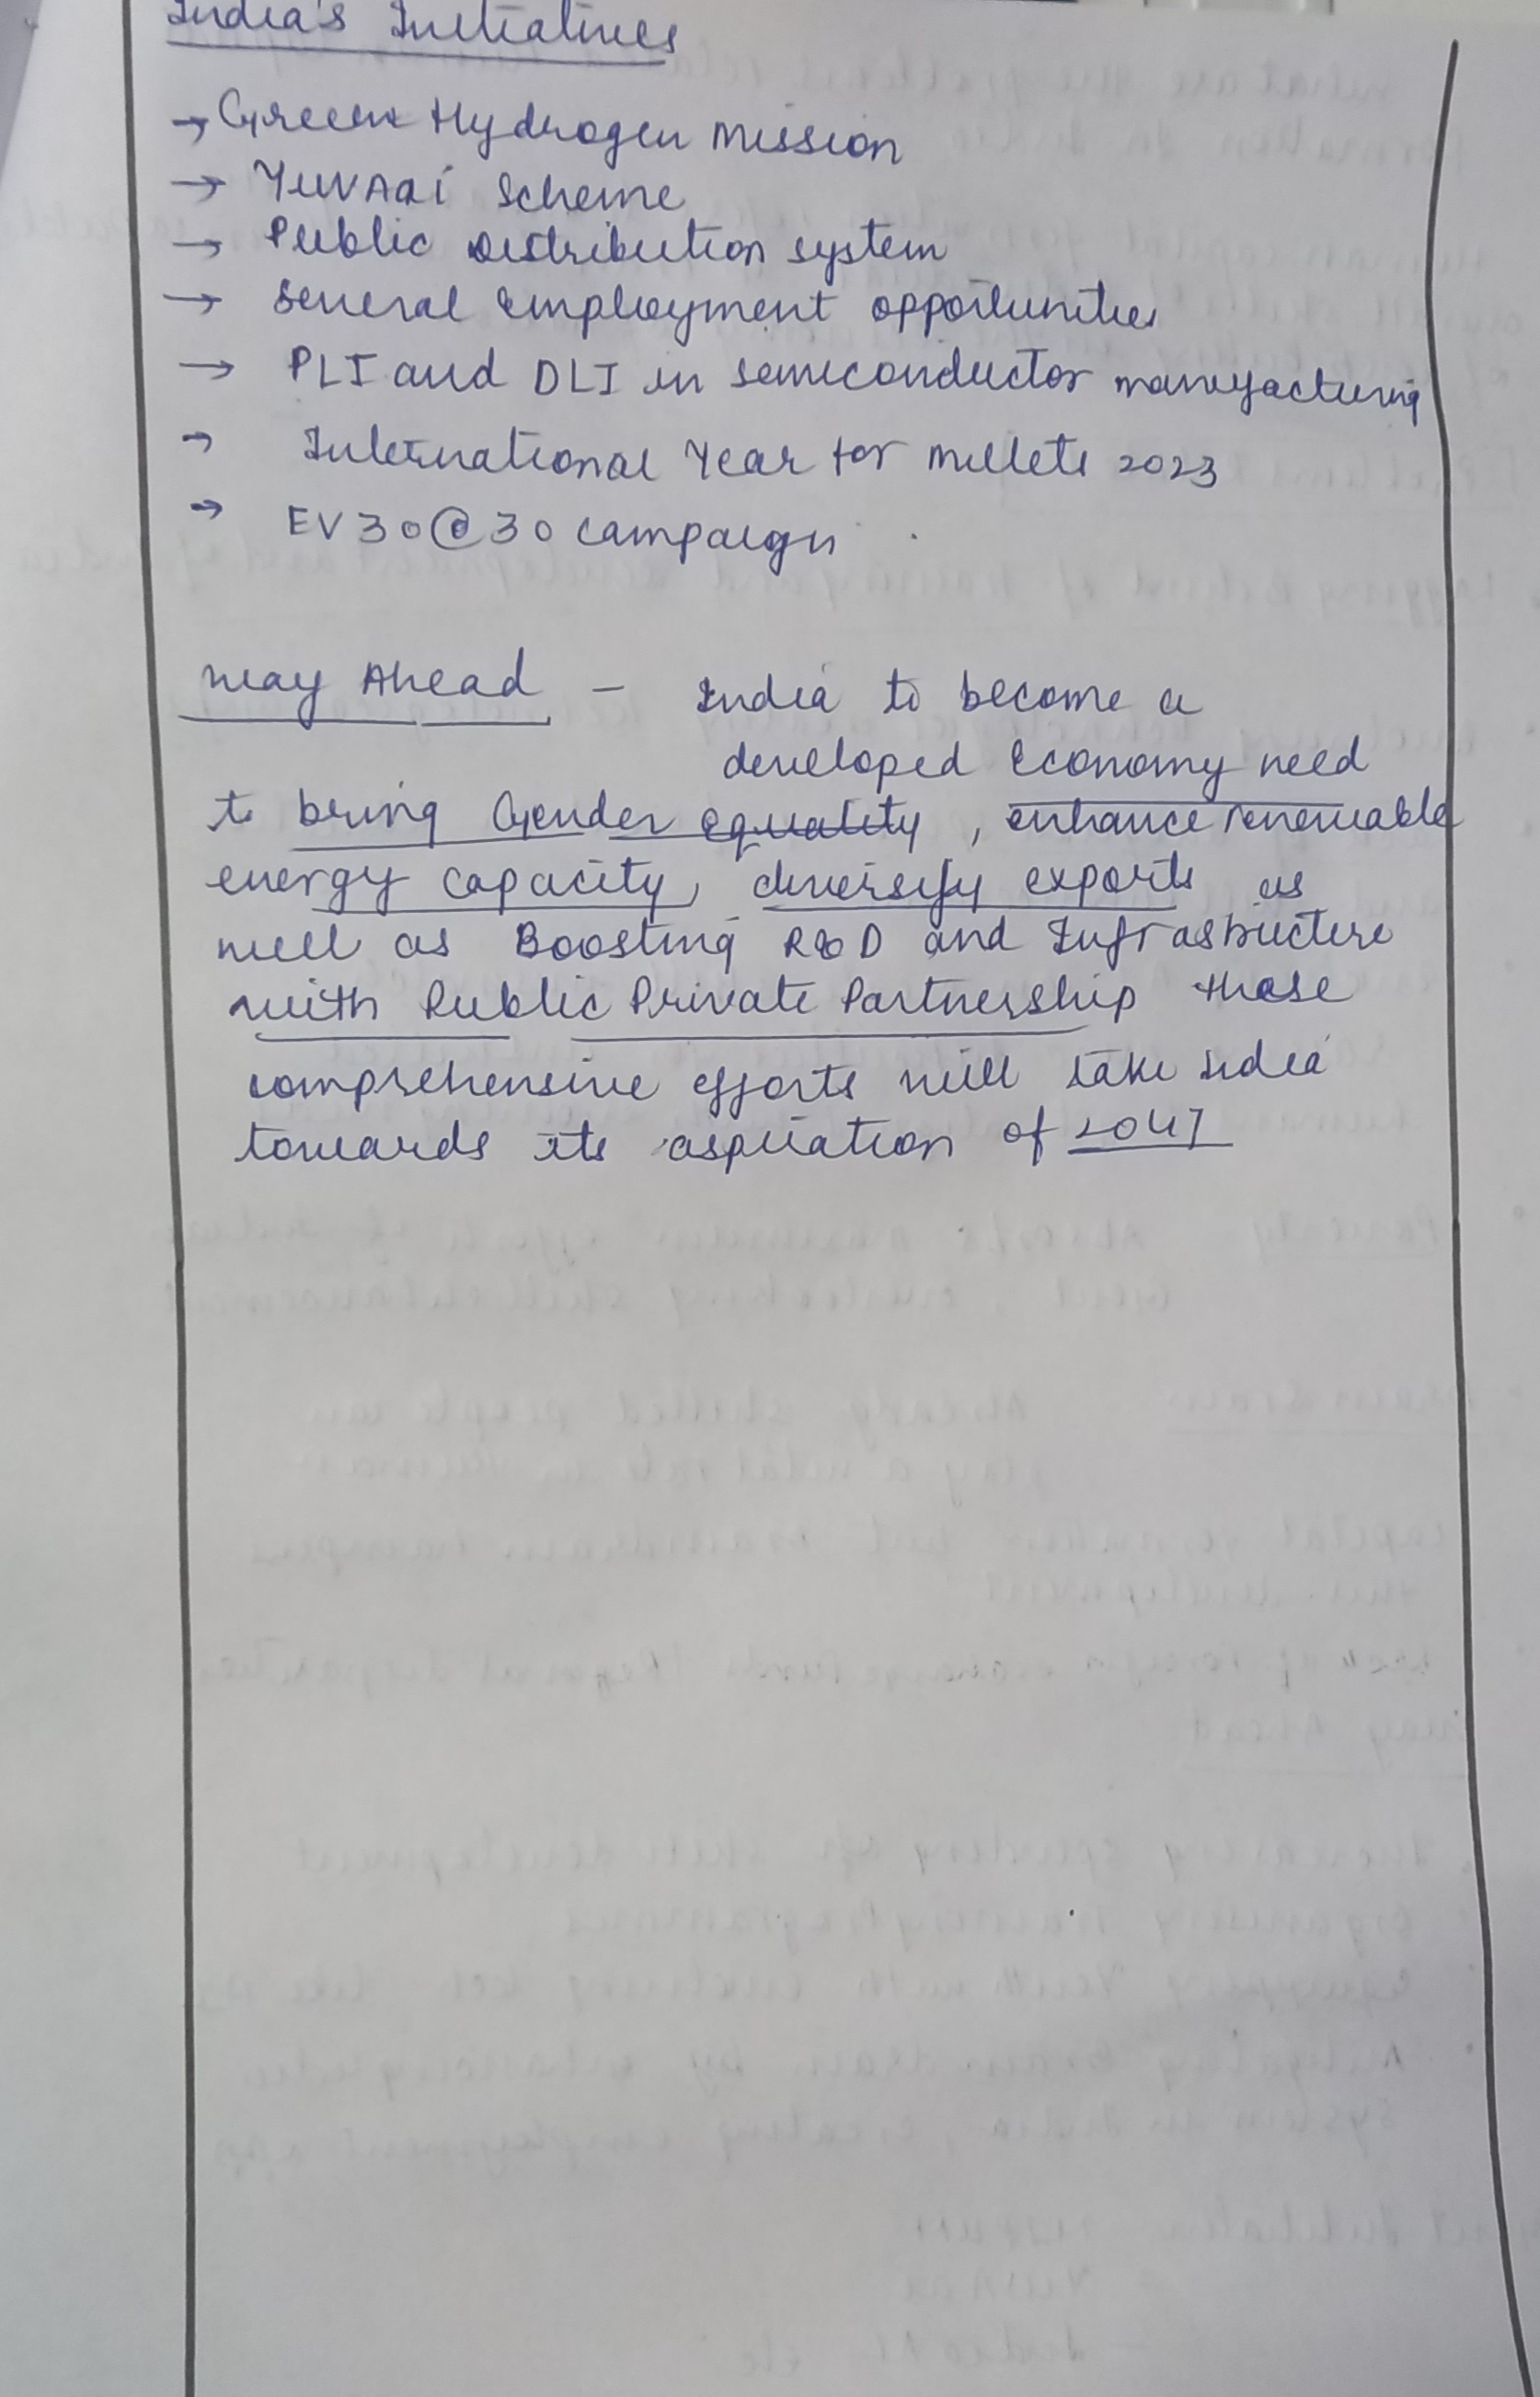 India's Initiatives
→ Green Hydrogen Mission
→ YUVAai Scheme
→ Public Distribution system
→ Several Employment opportunities
→ PLI and DLI in semiconductor manufacturing
→ International Year for millets 2023
→ EV30@30 campaign
Way Ahead – India to become a
developed Economy need
to bring Gender equality, enhance renewable
energy capacity, diversify exports as
well as Boosting R&D and Infrastructure
with Public Private Partnership these
comprehensive efforts will take India
towards its aspiration of 2047